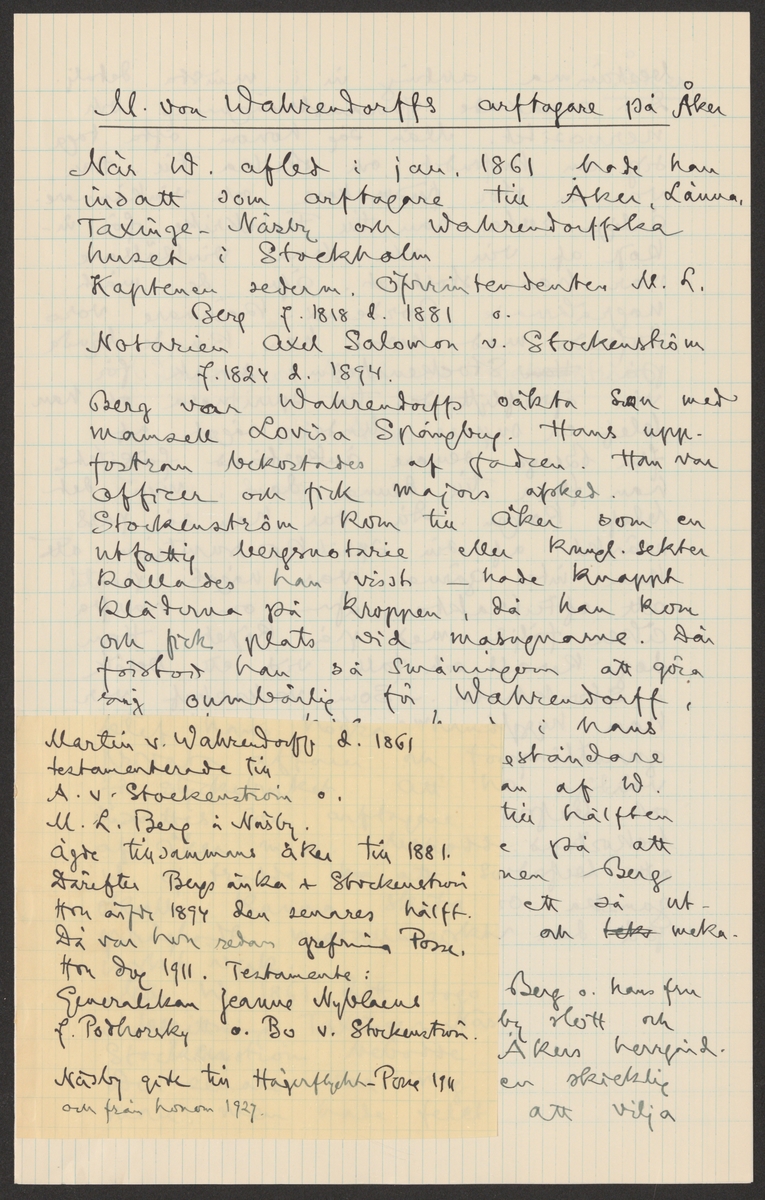 M. von Wahrendorffs arftagare på Åker
När W. afled i jan. 1861 hade han
insatt som arftagare till Åker, Länna,
Taxinge-Näsby och Wahrendorffska
huset i Stockholm
Kaptenen sederm. Öfverintendenten M. L.
Berg f. 1818 d. 1881 o.
Notarien Axel Salomon v. Stockenström
f. 1824 d. 1894.
Berg var Wahrendorffs oäkta son med
mamsell Lovisa Spångberg. Hans upp-
fostran bekostades af fadren. Han var
officer och fick majors afsked.
Stockenström kom till Åker som en
utfattig bergsnotarie eller kungl. sekter
kallades han visst – hade knappt
kläderna på kroppen, då han kom
och fick plats vid masugnarne. Där
förstod han så småningom att göra
sig oumbärlig för Wahrendorff,
i hans
eståndare
an af W.
till hälften
e på att
nen Berg
ett så ut-
och meka-
Berg o. hans fru
by slott och
Åkers herrgård.
en skicklig
att vilja
Martin v. Wahrendorff d. 1861
testamenterade till
A. v. Stockenström o.
M. L. Berg å Näsby.
Ägde tillsammans Åker till 1881.
Därefter Bergs änka + Stockenström
Hon ärfde 1894 den senares hälft.
Då var hon redan grefvinna Posse.
Hon dog 1911. Testamente:
Generalskan Jeanne Nyblaeus
f. Podhorsky o. Bo v. Stockenström.
Näsby gick till Hägerflycht-Posse 1911
och från honom 1927.